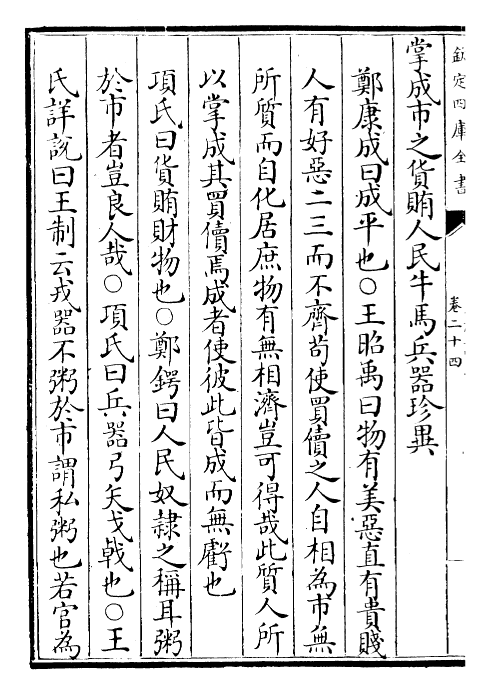 欽定四庫全書
卷二十四
掌成市之貨賄人民牛馬兵器珍異
鄭康成曰成平也○王昭禹曰物有美惡直有貴賤
人有好惡二三而不齊茍使買儥之人自相為市無
所質而自化居庶物有無相濟豈可得哉此質人所
以掌成其買儥焉成者使彼此皆成而無虧也
項氏曰貨賄財物也○鄭鍔曰人民奴隷之稱耳粥
於市者豈良人哉○項氏曰兵器弓矢戈戟也○王
氏詳說曰王制云戎器不粥於市謂私粥也若官為